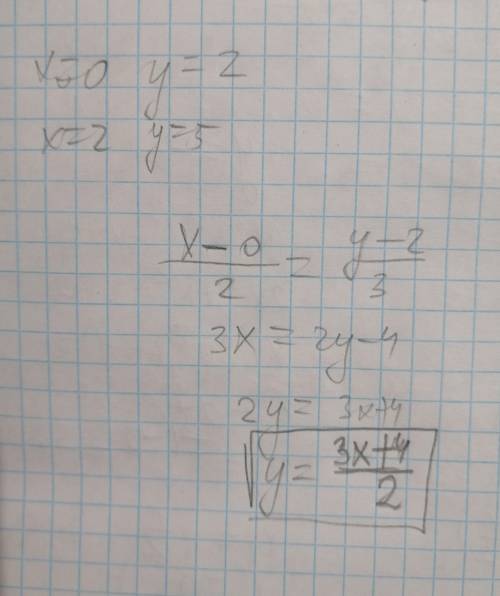 x=0 y=2
x=2 y=5
(x-0)/2 = (y-2)/3
3x = 2y-4
2y = 3x+4
y = (3x+4)/2